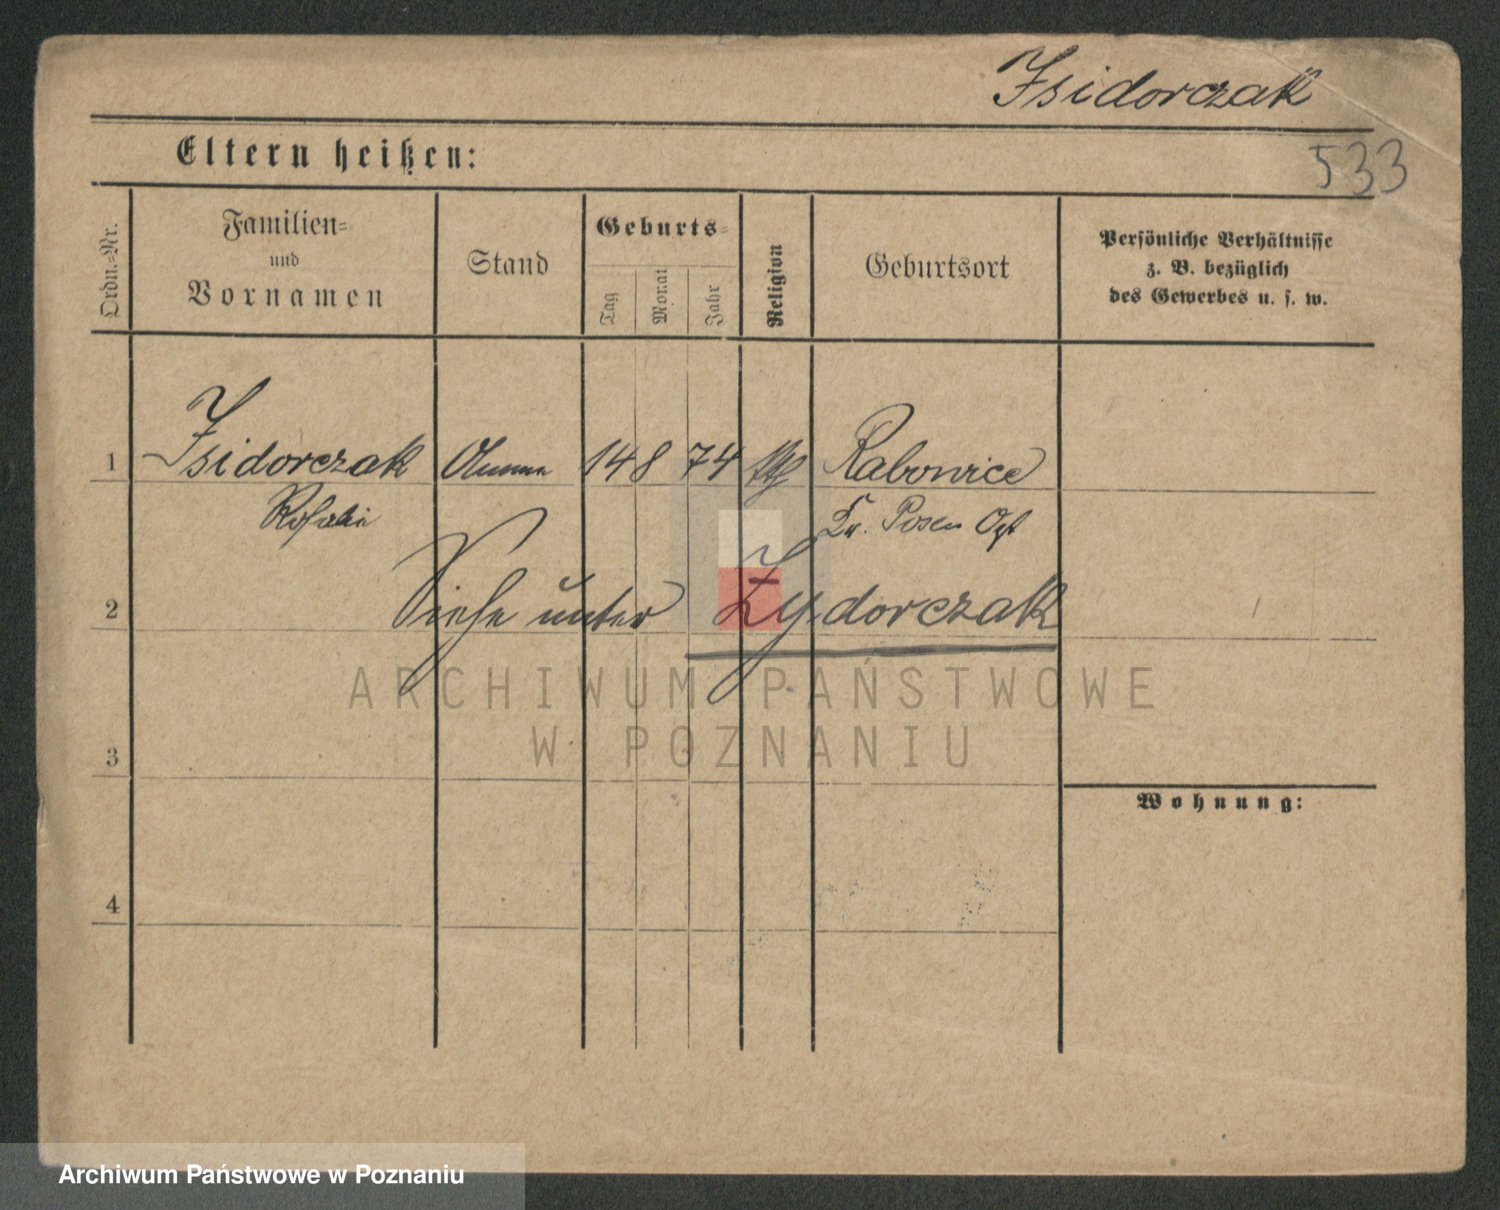 Isidorczak
533
Eltern heißen:
Ordn.-Nr.
Familien-
und
Vornamen
Stand
Geburts-
Tag
Monat
Jahr
Religion
Geburtsort
Persönliche Verhältnisse
z. B. bezüglich
des Gewerbes u. s. w.
1 Isidorczak 14 8 74 kth Rabowice
Rosalie Kr. Posen Ost
2 Siehe unter Zydorczak
ARCHIWUM PAŃSTWOWE
W POZNANIU
3
Wohnung:
4
Archiwum Państwowe w Poznaniu